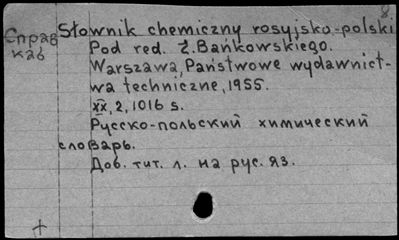 8
Справ
каб
Słownik chemiczny rosyjsko-polski
Pod red. Z. Bańkowskiego.
Warszawa, Państwowe wydawnict-
wa techniczne, 1955.
XX, 2, 1016 s.
Русско-польский химический
словарь.
Доб. тит. л. на рус. яз.
+